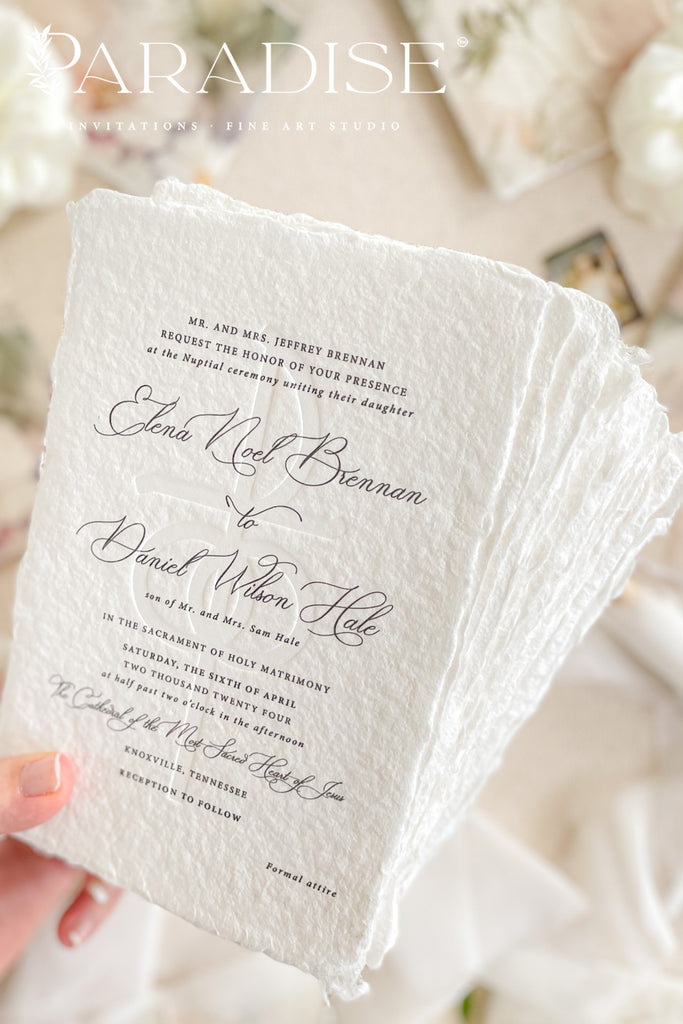 PARADISE
INVITATIONS · FINE ART STUDIO
MR. AND MRS. JEFFREY BRENNAN
REQUEST THE HONOR OF YOUR PRESENCE
at the Nuptial ceremony uniting their daughter
Elena Noel Brennan
to
Daniel Wilson Hale
son of Mr. and Mrs. Sam Hale
IN THE SACRAMENT OF HOLY MATRIMONY
SATURDAY, THE SIXTH OF APRIL
TWO THOUSAND TWENTY FOUR
at half past two o'clock in the afternoon
The Cathedral of the Most Sacred Heart of Jesus
KNOXVILLE, TENNESSEE
RECEPTION TO FOLLOW
Formal attire